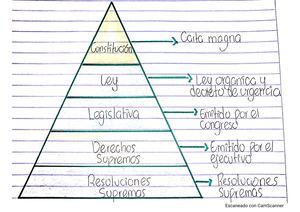 Constitución
Carta magna
Ley
Ley organica y
decreto de urgencia
Legislativa
Emitido por el
Congreso
Derechos
Supremos
Emitido por el
ejecutivo
Resoluciones
Supremas
Resoluciones
Supremas
Escaneado con CamScanner